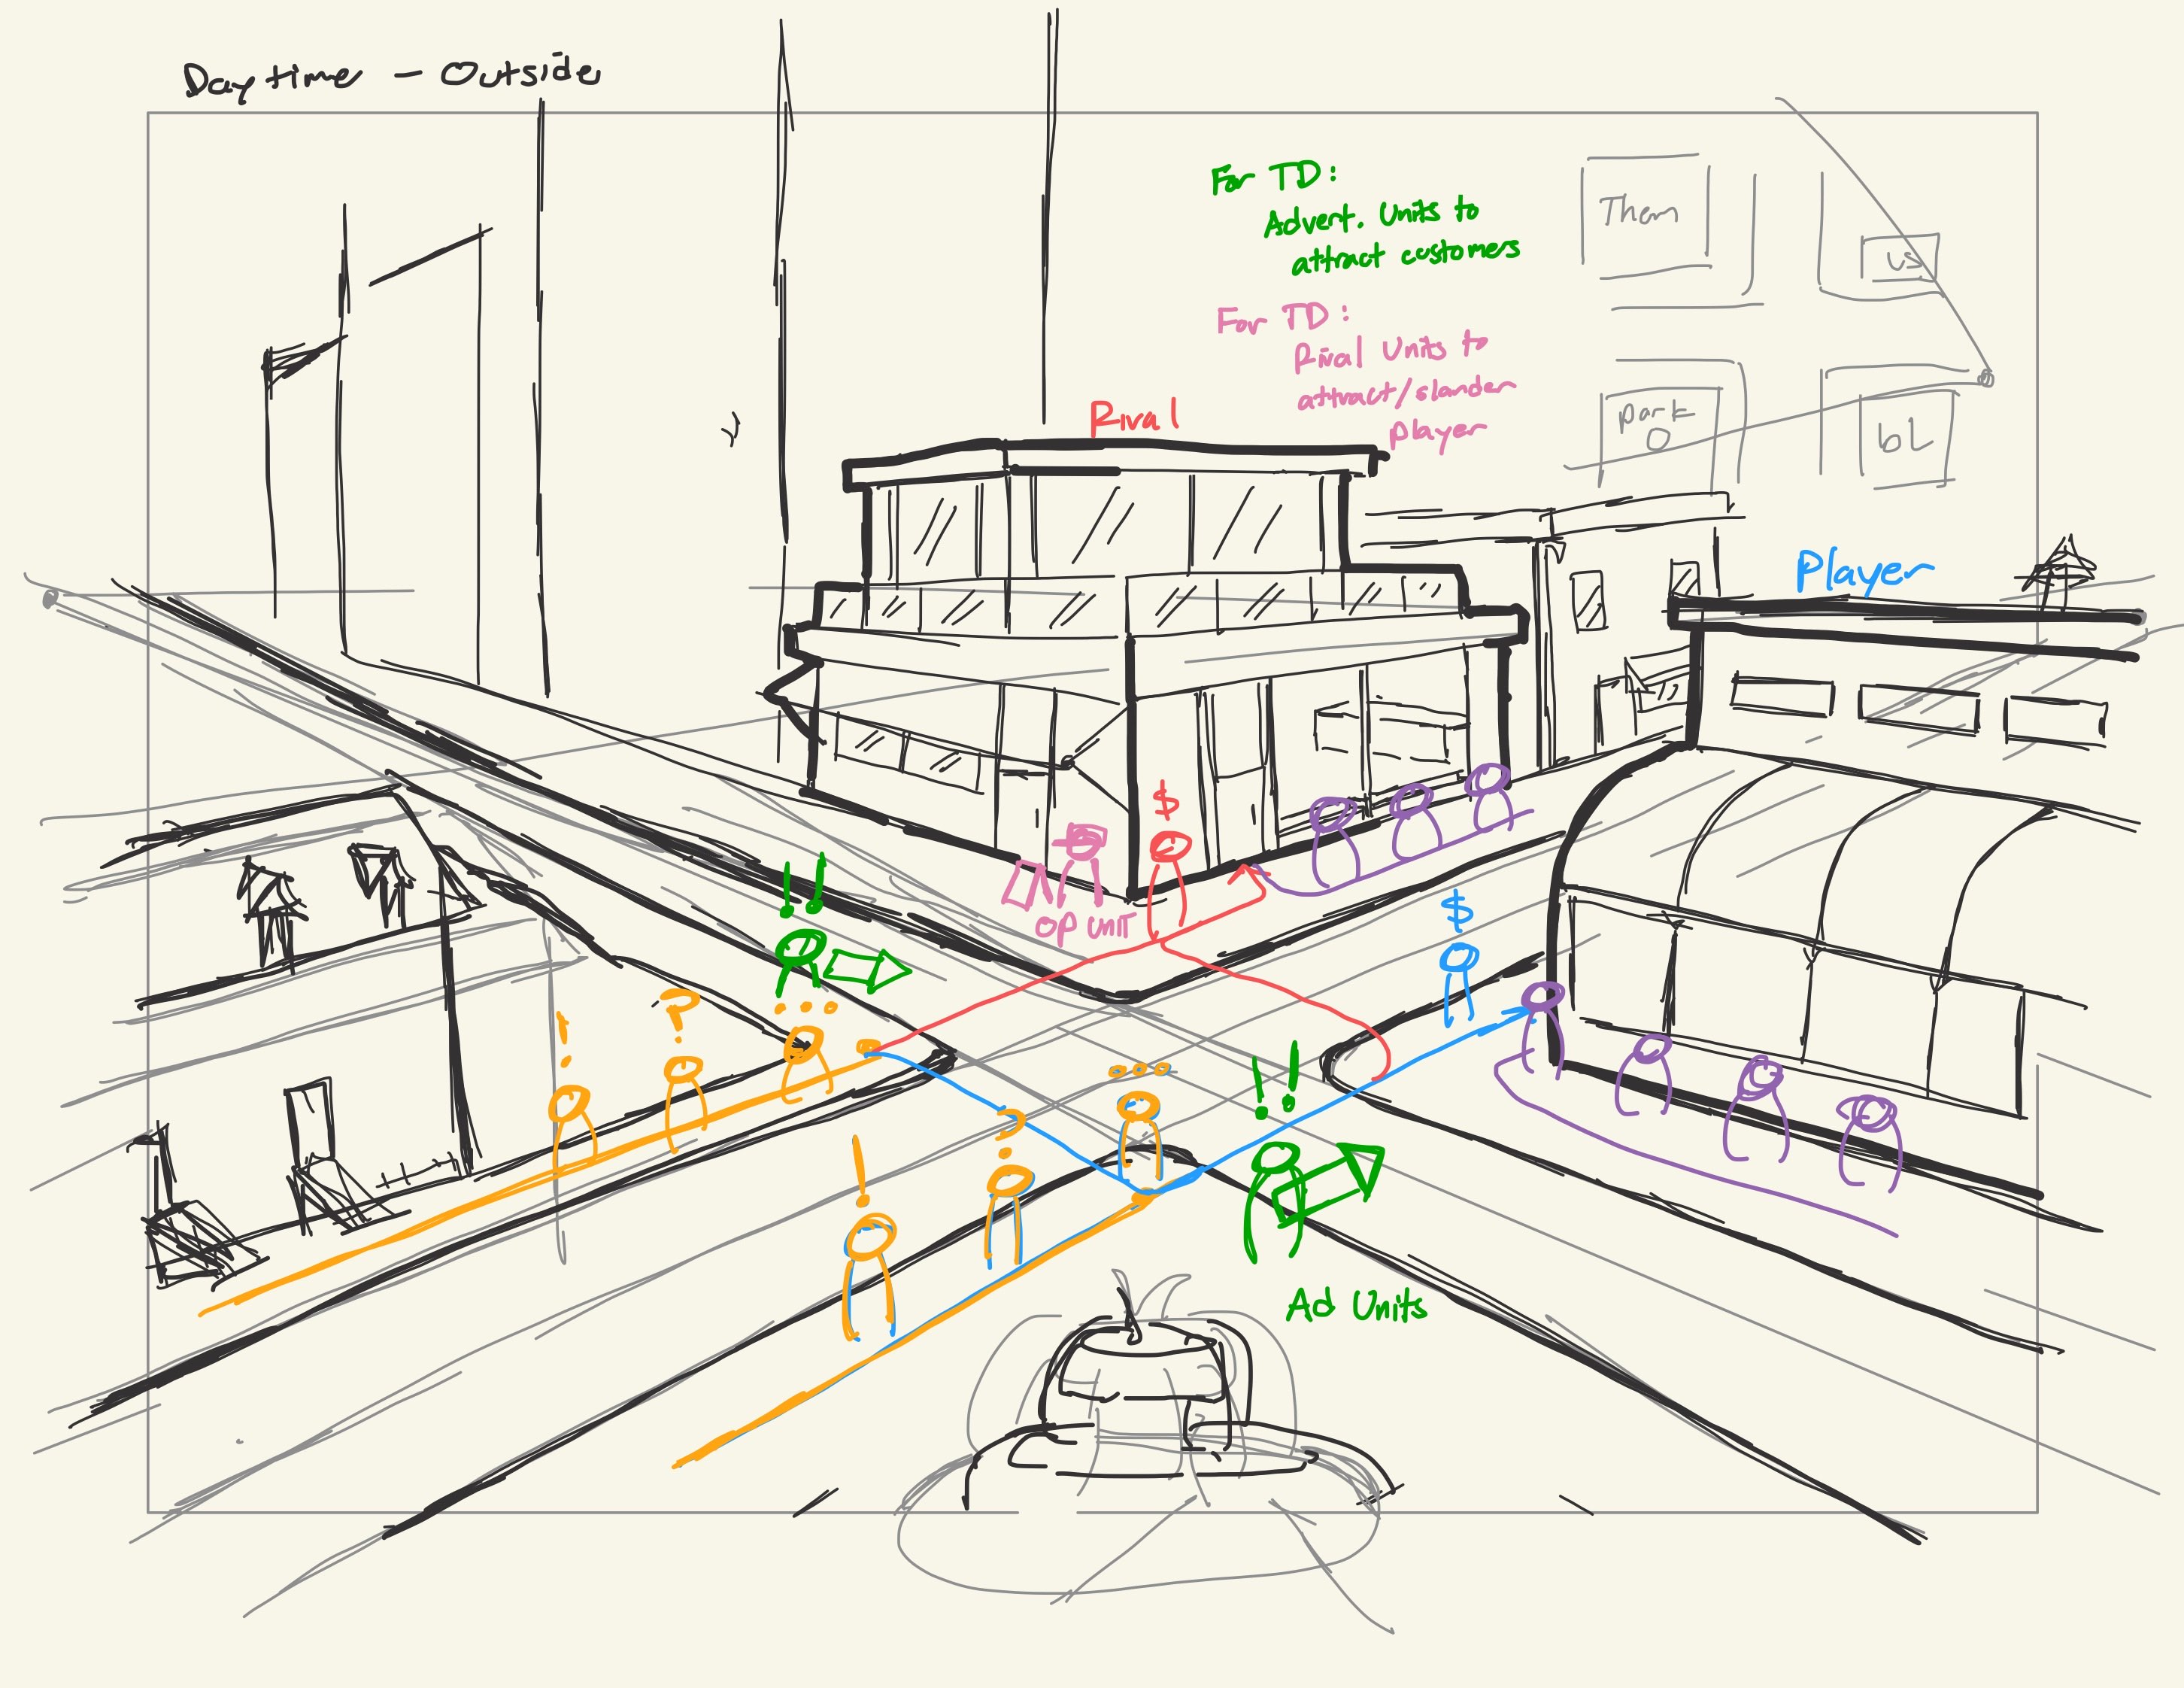 Daytime - Outside
For TD:
Advert. Units to
attract customers
Them
us
For TD:
Rival Units to
attract/slander
player
Park
bL
Rival
Player
$
!!
op unit
$
...
?
!
...
!!
?
!
Ad Units